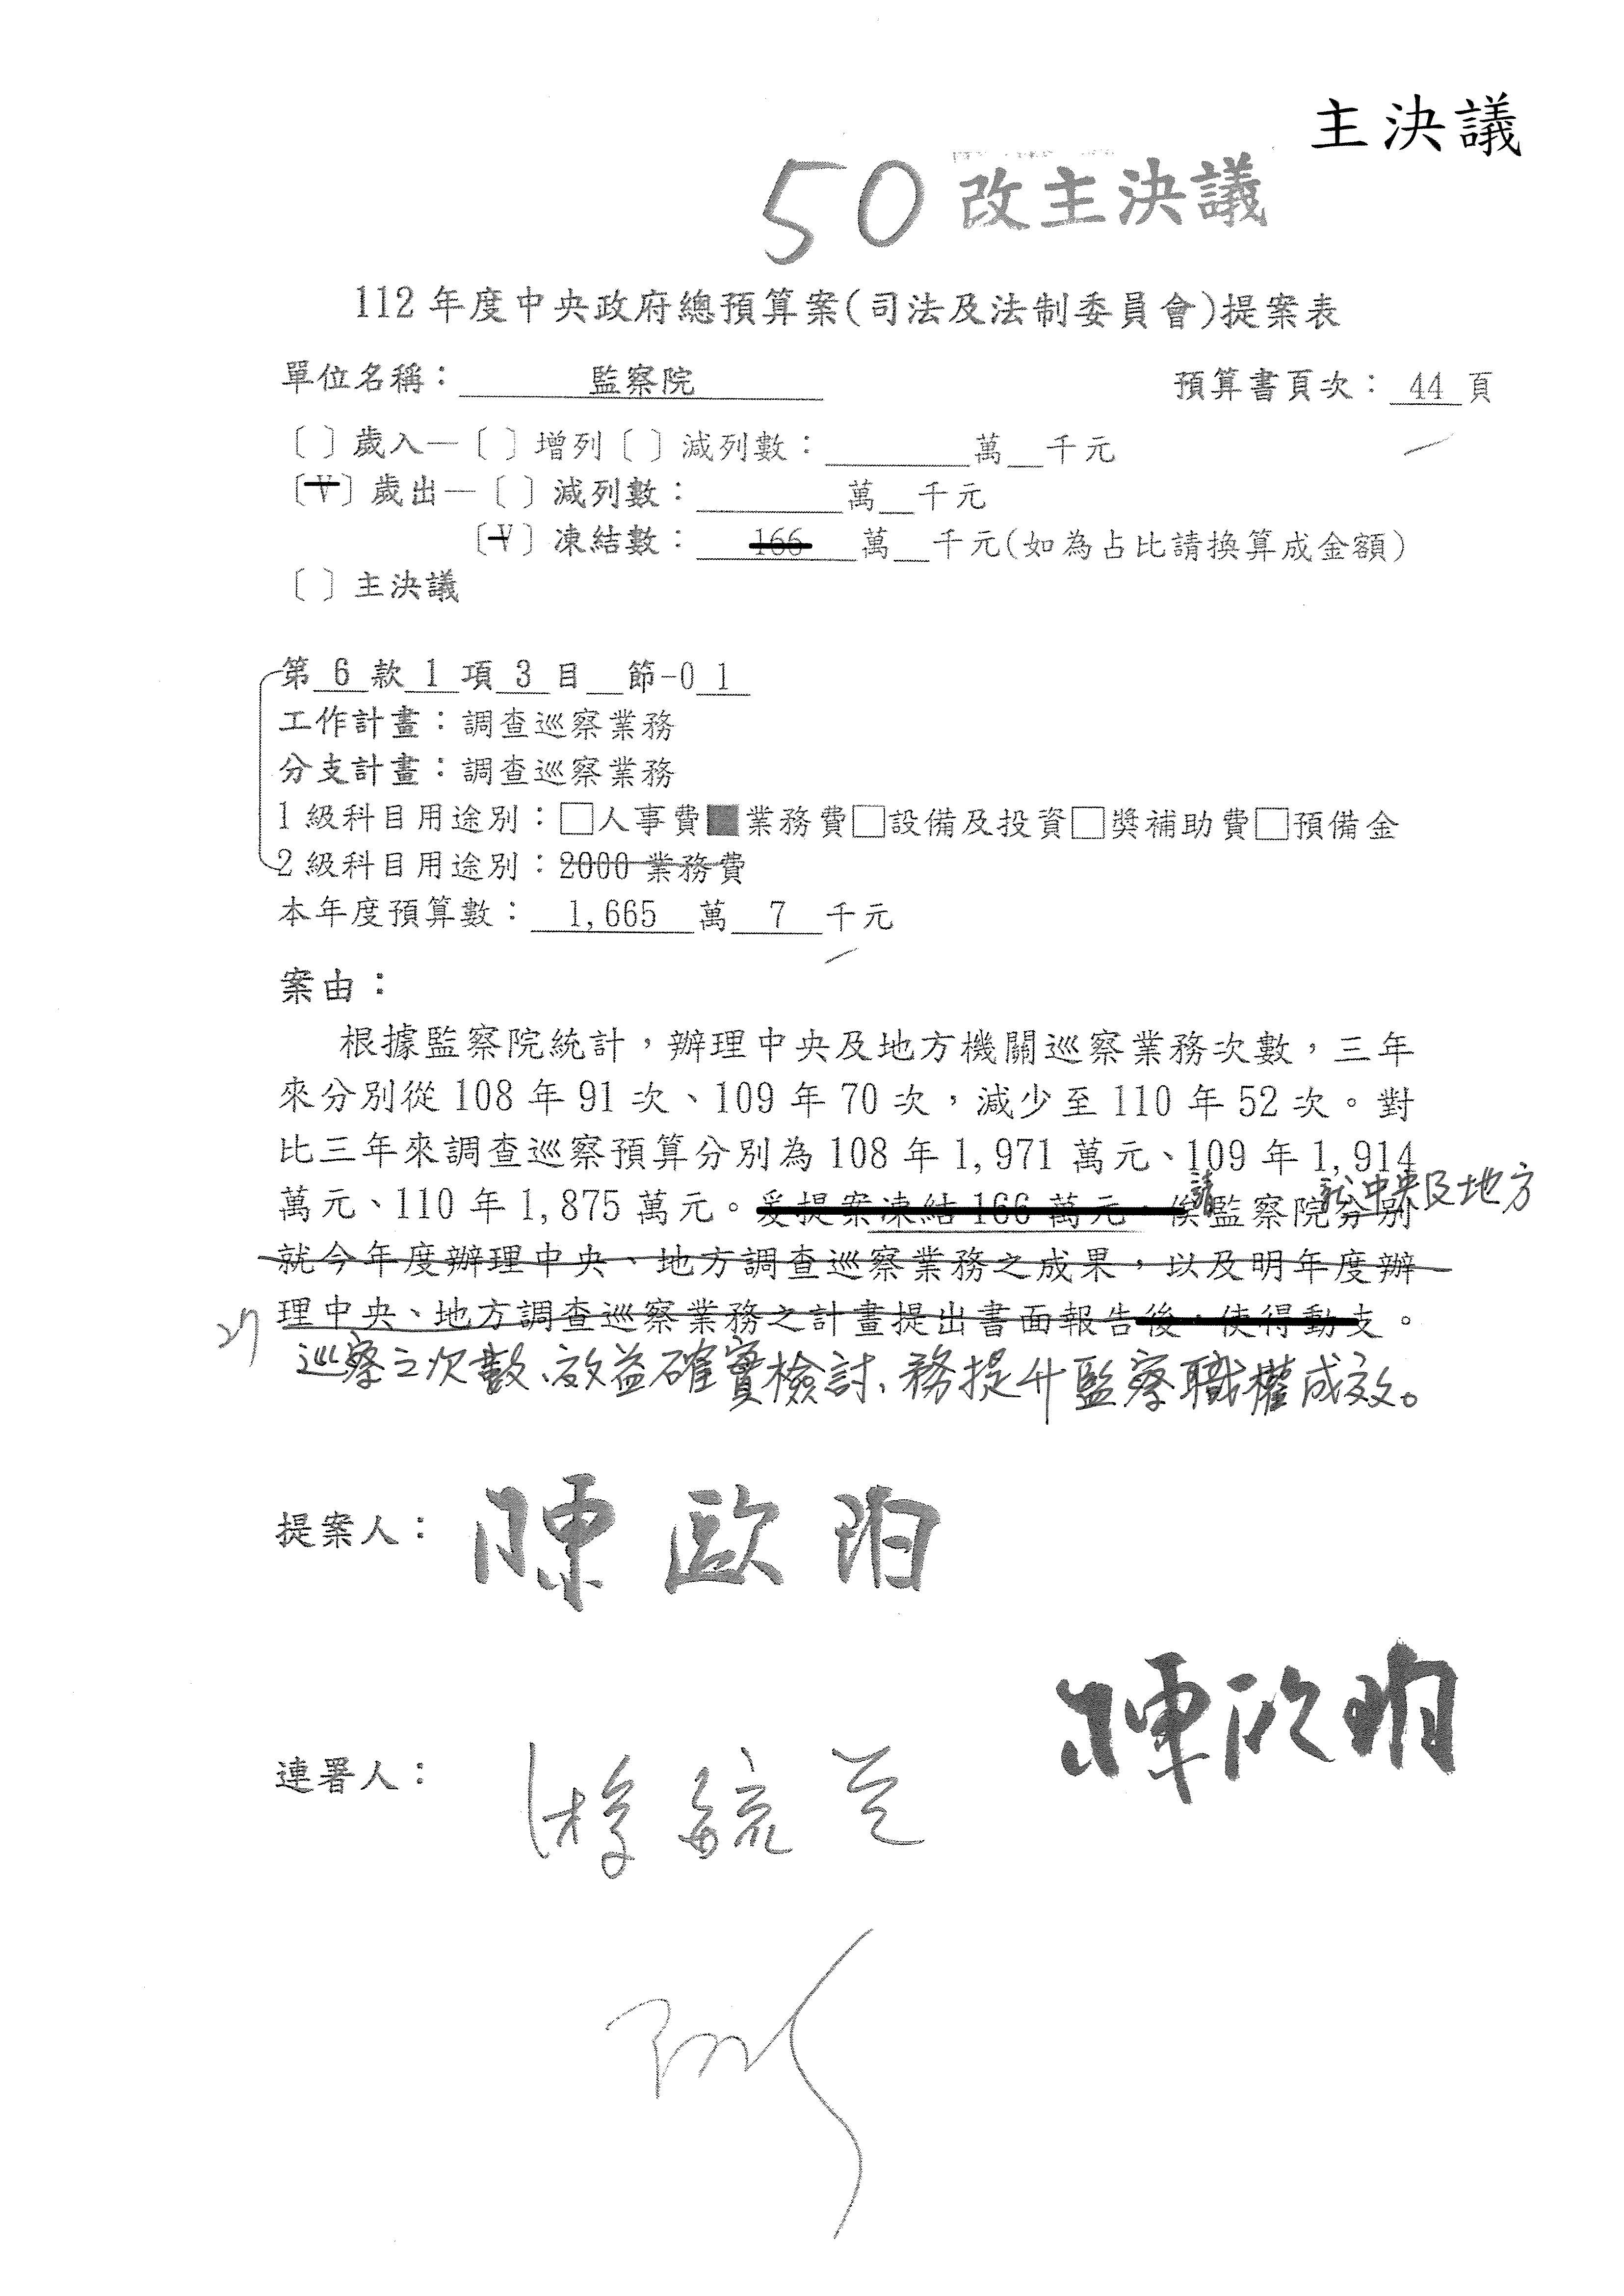 主決議
50 改主決議
112年度中央政府總預算案(司法及法制委員會)提案表
單位名稱：監察院 預算書頁次：44頁
〔 〕歲入—〔 〕增列〔 〕減列數：______萬__千元
〔V〕歲出—〔 〕減列數：______萬__千元
〔V〕凍結數：166萬__千元(如為占比請換算成金額)
〔 〕主決議
第6款1項3目__節-01
工作計畫：調查巡察業務
分支計畫：調查巡察業務
1級科目用途別：□人事費■業務費□設備及投資□獎補助費□預備金
2級科目用途別：2000業務費
本年度預算數：1,665萬7千元
案由：
根據監察院統計，辦理中央及地方機關巡察業務次數，三年
來分別從108年91次、109年70次，減少至110年52次。對
比三年來調查巡察預算分別為108年1,971萬元、109年1,914
請 就中央及地方
萬元、110年1,875萬元。爰提案凍結166萬元，俟監察院分別
就今年度辦理中央、地方調查巡察業務之成果，以及明年度辦
理中央、地方調查巡察業務之計畫提出書面報告後，使得動支。
巡察之次數、效益確實檢討、務提升監察職權成效。
提案人：陳歐珀
陳歐珀
連署人：游毓蘭